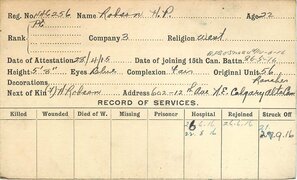 Reg. No. 446256 Name Robson H.P. Age 22
Rank Pte Company 3 Religion
Date of Attestation 28/4/15 Date of joining 15th Can. Battn. 28-5-16
Height 5' 8" Eyes Blue Complexion Fair Original Unit 56
Decorations Rancher
Next of Kin Robson Address 602-12th Ave N.E. Calgary Alta Can
RECORD OF SERVICES.
Killed Wounded Died of W. Missing Prisoner Hospital Rejoined Struck Off
6.16 26.6.16
22.8.16 28.9.16